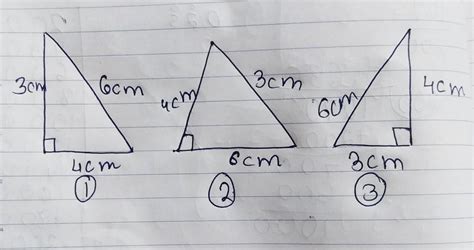 3cm 6cm 4cm 3cm 6cm 4cm
4cm 6cm 3cm
1 2 3